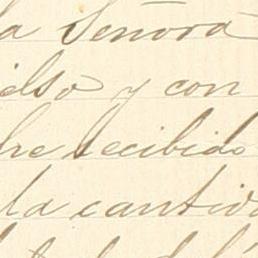 la Señora
elso y con
bre recibido
la cantida